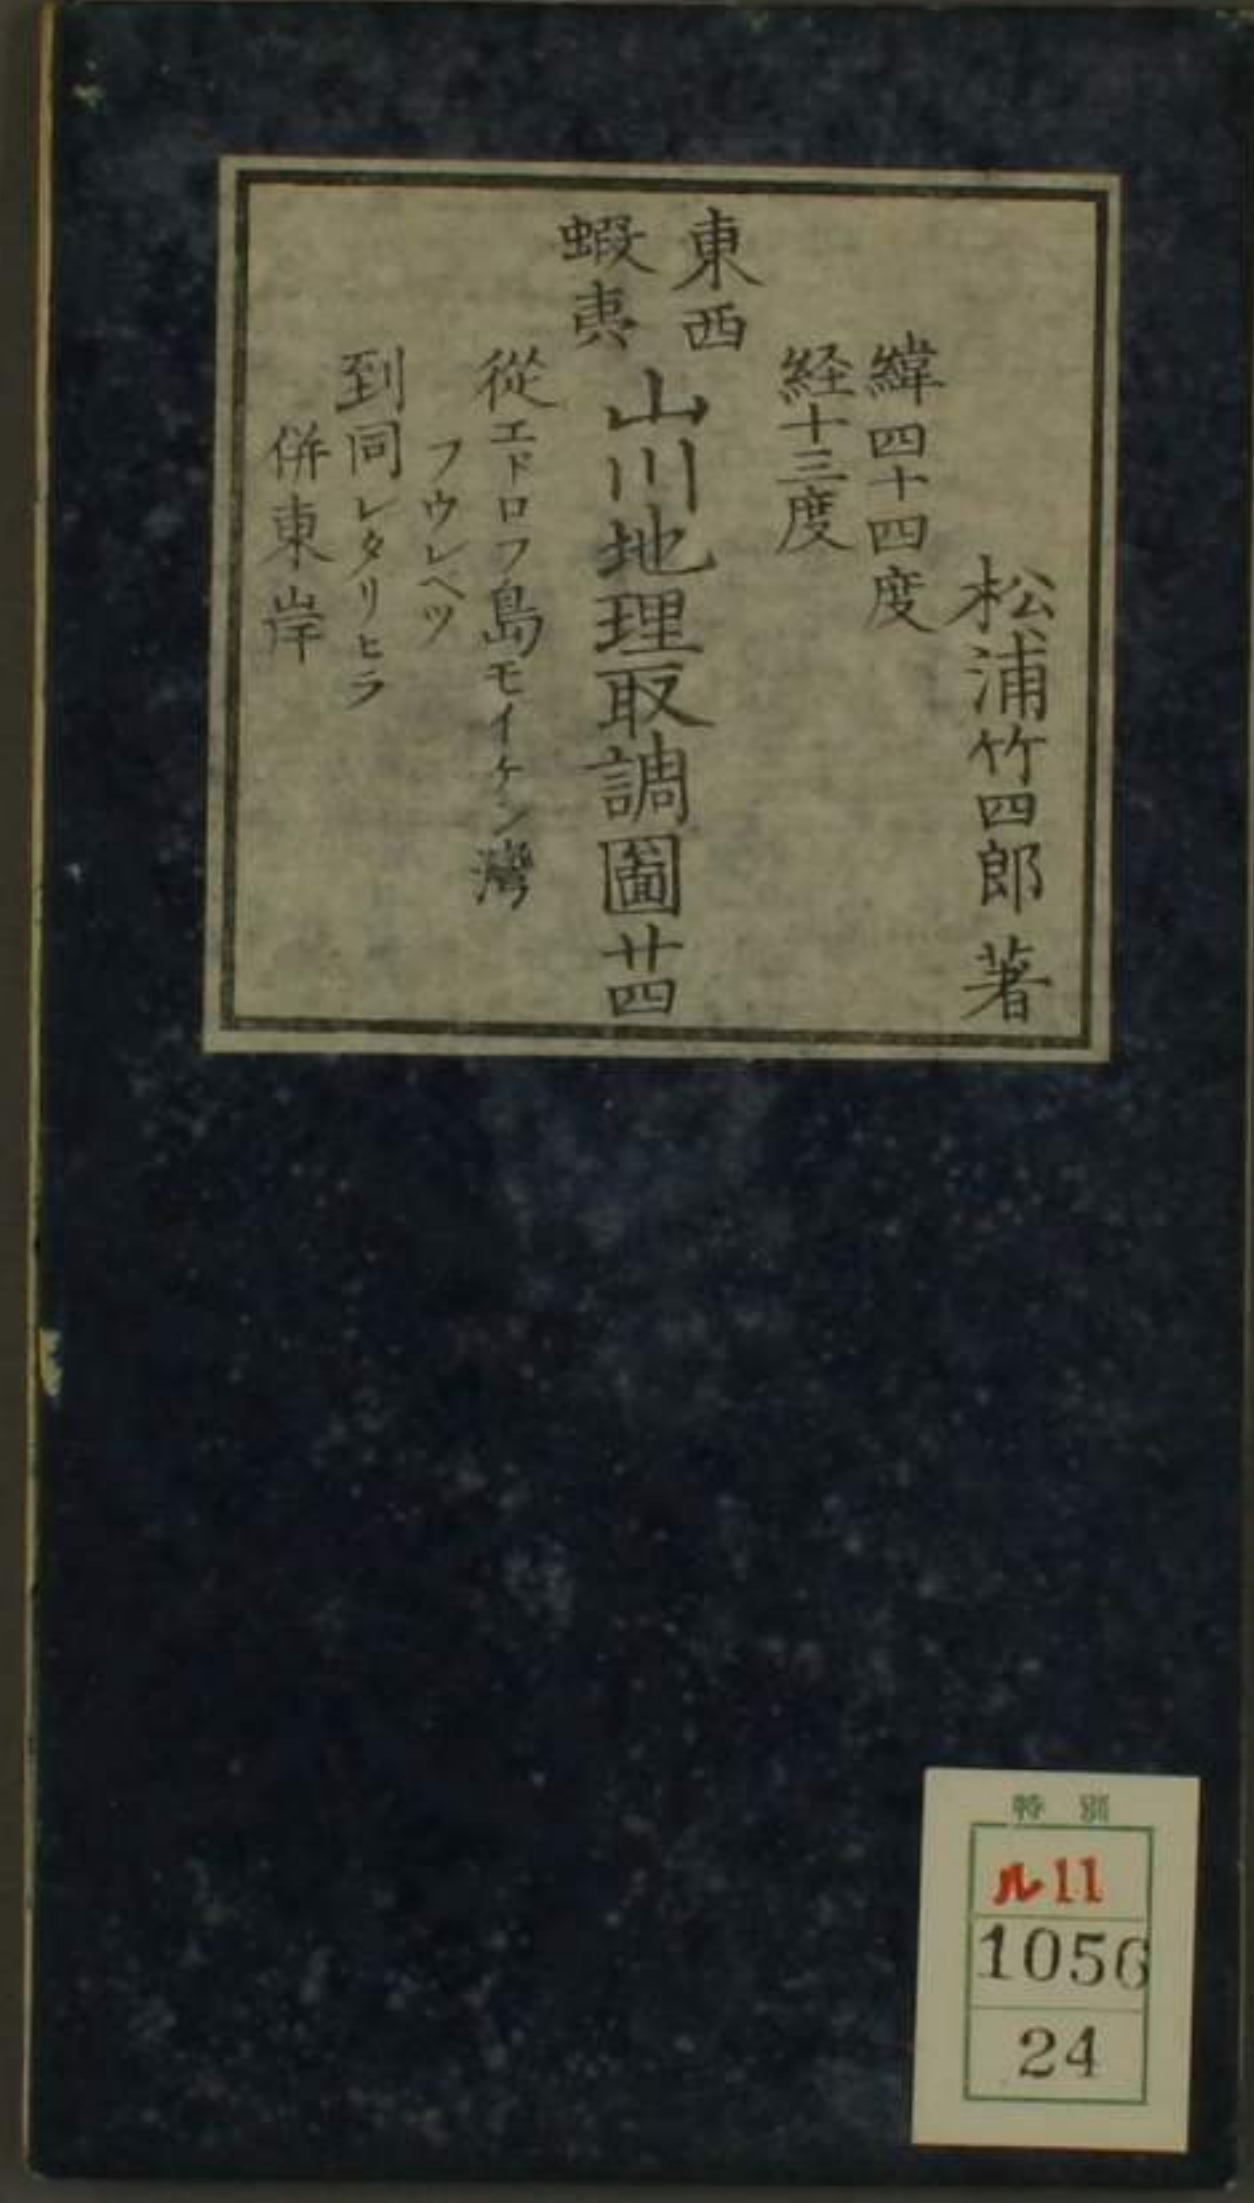 松浦竹四郎 著
緯四十四度
経十三度
東西
蝦夷
山川地理取調圖廿四
從エドロフ島モイケシ灣
フウレベツ
到同レタリヒラ
併東岸
特別
ル11
1056
24